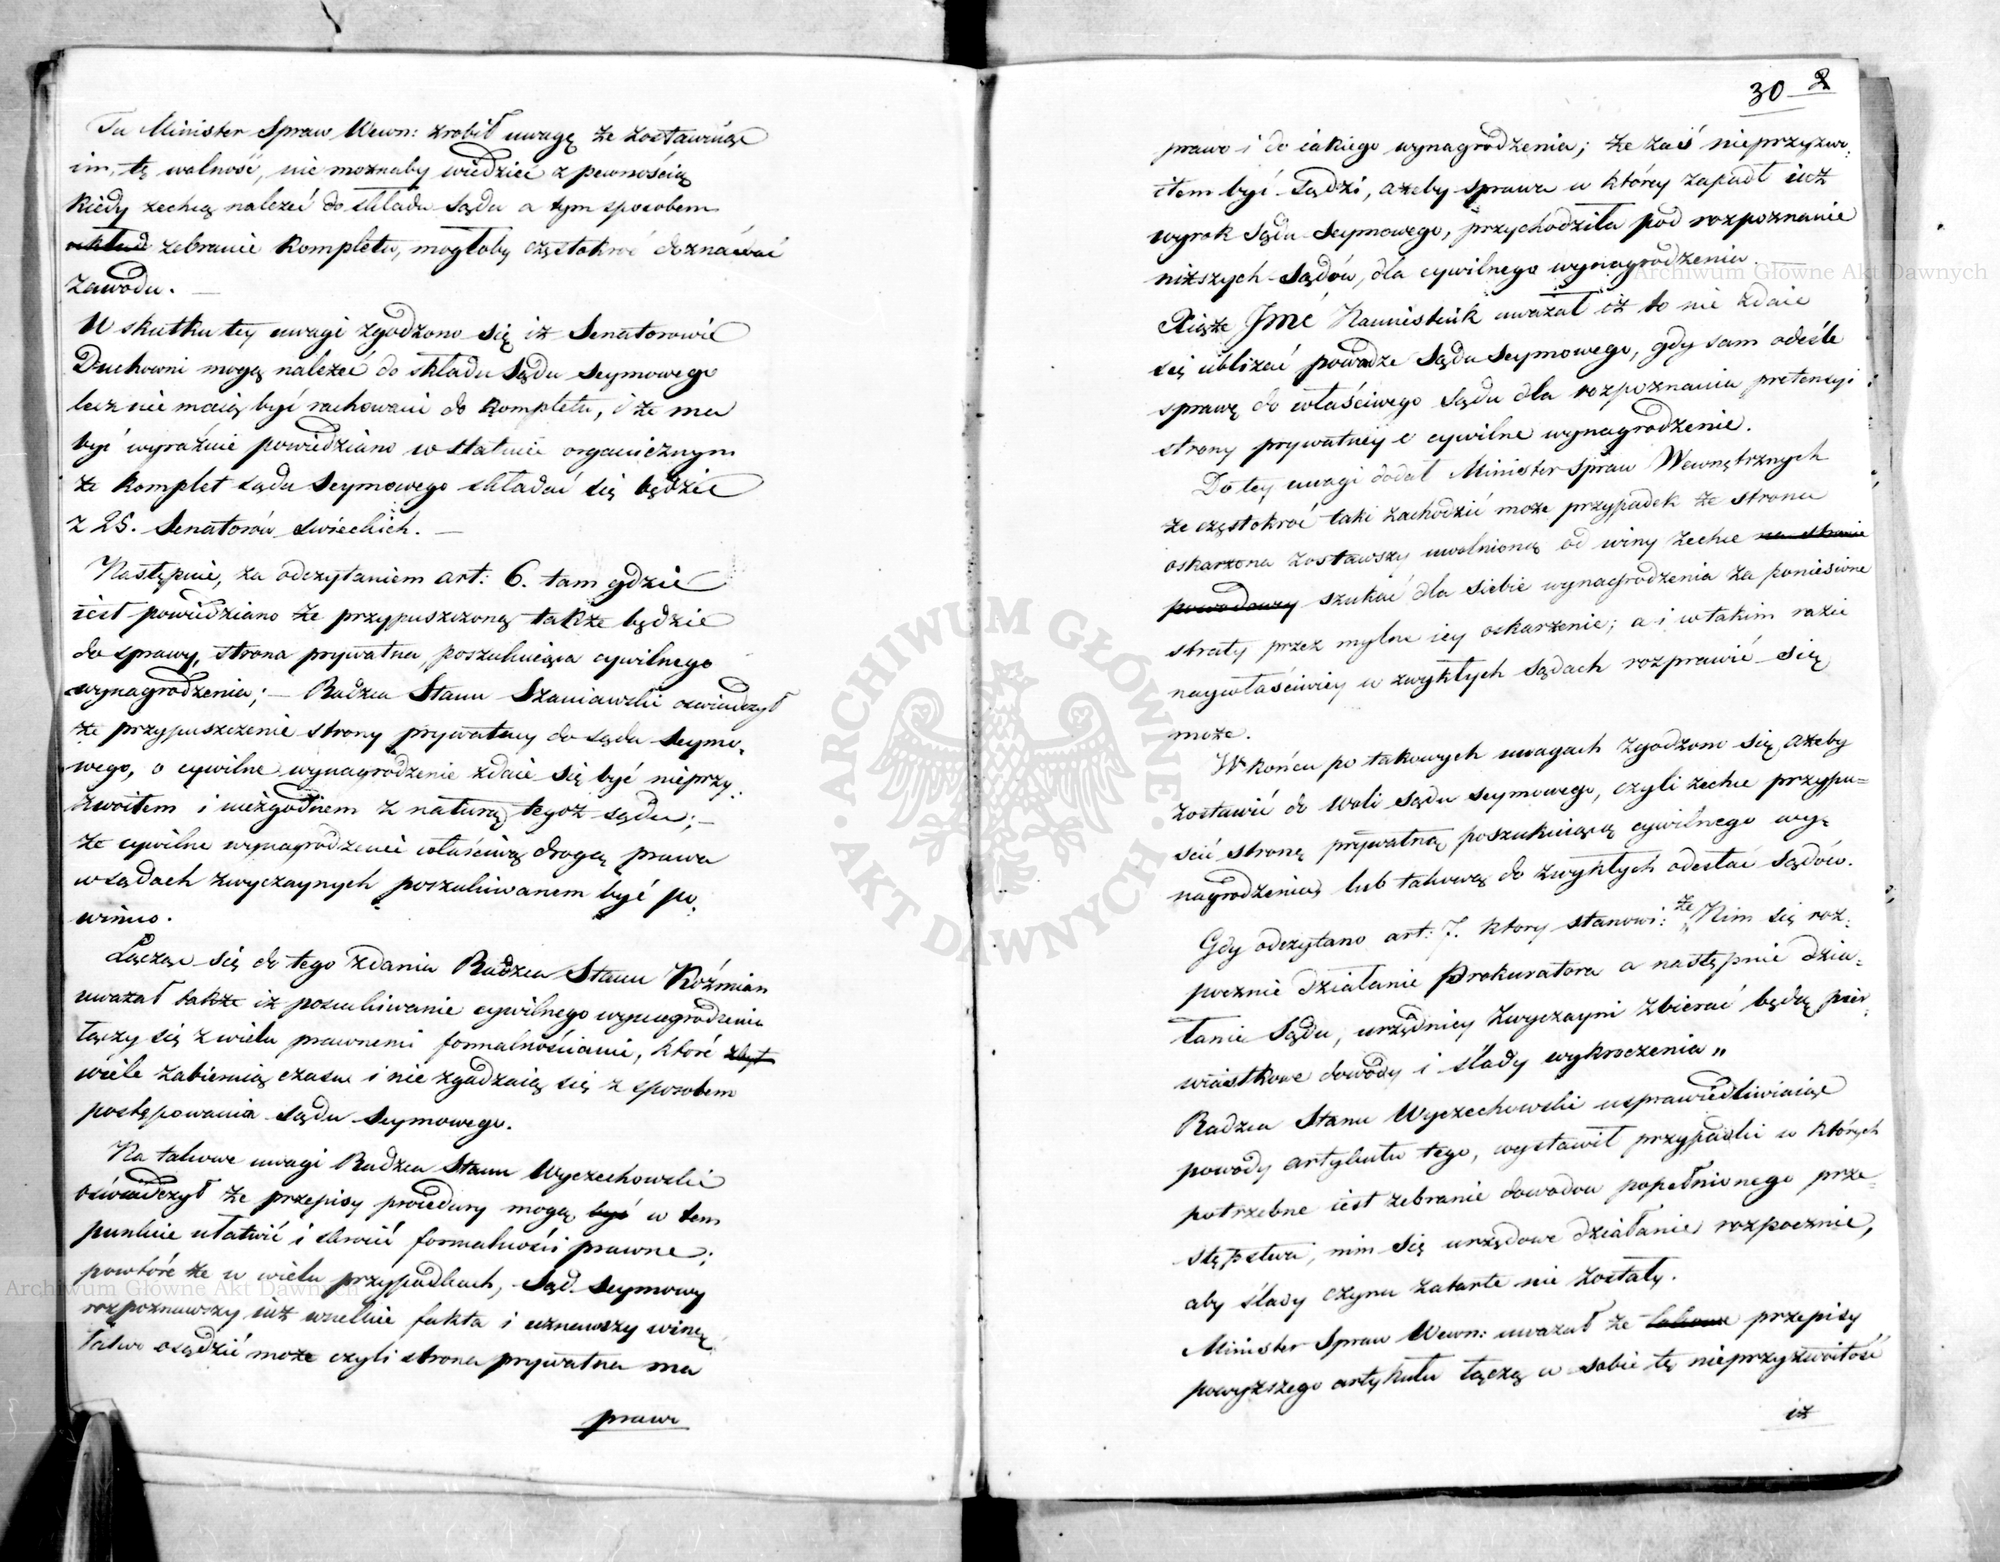 Tu Minister Spraw Wewn: zrobił uwagę że zostawuiąc
im, tę wolność, nie możnaby wiedzieć z pewnością
kiedy zechcą należeć do składu Sądu a tym sposobem
zebranie kompletu, mogłoby częstokroć doznawać
zawodu. —
W skutku tey uwagi zgodzono się iż Senatorowie
Duchowni mogą należeć do składu Sądu Seymowego
lecz nie maią być rachowani do kompletu, i że ma
być wyraźnie powiedziano w statucie organicznym
że komplet sądu Seymowego składać się będzie
z 25. Senatorów świeckich. —
Następnie, za odczytaniem art: 6. tam gdzie
iest powiedziano że przypuszczoną także będzie
do sprawy, strona prywatna poszukuiąca cywilnego
wynagrodzenia; — Radzca Stanu Szaniawski oświadczył
że przypuszczenie strony prywatney do sądu Seymo-
wego, o cywilne wynagrodzenie zdaie się być nieprzy-
zwoitem i niezgodnem z naturą tegoż sądu; —
że cywilne wynagrodzenie właściwą drogą prawa
w sądach zwyczaynych poszukiwanem być po-
winno.
Łącząc się do tego zdania Radzca Stanu Koźmian
uważał także iż poszukiwanie cywilnego wynagrodzenia
łączy się z wielu prawnemi formalnościami, które zbyt
wiele zabieraią czasu i nie zgadzaią się z sposobem
postępowania Sądu Seymowego.
Na takowe uwagi Radzca Stanu Wyczechowski
oświadczył że przepisy procedury mogą być w tem
punkcie ułatwić i skrócić formalności prawne;
powtóre że w wielu przypadkach, Sąd Seymowy
rozpoznawszy iuż wszelkie fakta i uznawszy winę
łatwo osądzić może czyli strona prywatna ma
prawo
30 2
prawo i do iakiego wynagrodzenia; że zaś nieprzyzwo-
item być sądzi, ażeby sprawa w którey zapadł iuż
wyrok Sądu Seymowego, przychodziła pod rozpoznanie
niższych Sądów, dla cywilnego wynagrodzenia. —
Xiąże Jmć Namiestnik uważał iż to nie zdaie
się ubliżać powadze Sądu Seymowego, gdy sam odeśle
sprawę do właściwego Sądu dla rozpoznania pretensyi
strony prywatney o cywilne wynagrodzenie.
Do tey uwagi dodał Minister Spraw Wewnętrznych
że częstokroć taki zachodzić może przypadek że strona
oskarżona zostawszy uwolnioną od winy zechce na stronie
powodowey szukać dla siebie wynagrodzenia za poniesione
straty przez mylne iey oskarżenie; a i w takim razie
naywłaściwiey w zwykłych sądach rozprawić się
może.
W końcu po takowych uwagach zgodzono się, ażeby
zostawić do woli Sądu Seymowego, czyli zechce przypu-
ścić stronę prywatną poszukuiącą cywilnego wy-
nagrodzenia, lub takową do zwykłych odesłać Sądów.
Gdy odczytano art: 7. który stanowi: że „Nim się roz-
pocznie działanie Prokuratora a następnie dzia-
łanie Sądu, urzędnicy zwyczayni zbierać będą pier-
wiastkowe dowody i ślady wykroczenia”
Radzca Stanu Wyczechowski usprawiedliwiaiąc
powody artykułu tego, wystawił przypadki w których
potrzebne iest zebranie dowodów popełnionego prze-
stępstwa, nim się urzędowe działanie rozpocznie,
aby ślady czynu zatarte nie zostały.
Minister Spraw Wewn: uważał że takowe przepisy
powyższego artykułu łączą w sobie tę nieprzyzwoitość
iż
ARCHIWUM GŁÓWNE · AKT DAWNYCH ·
Archiwum Główne Akt Dawnych
Archiwum Główne Akt Dawnych